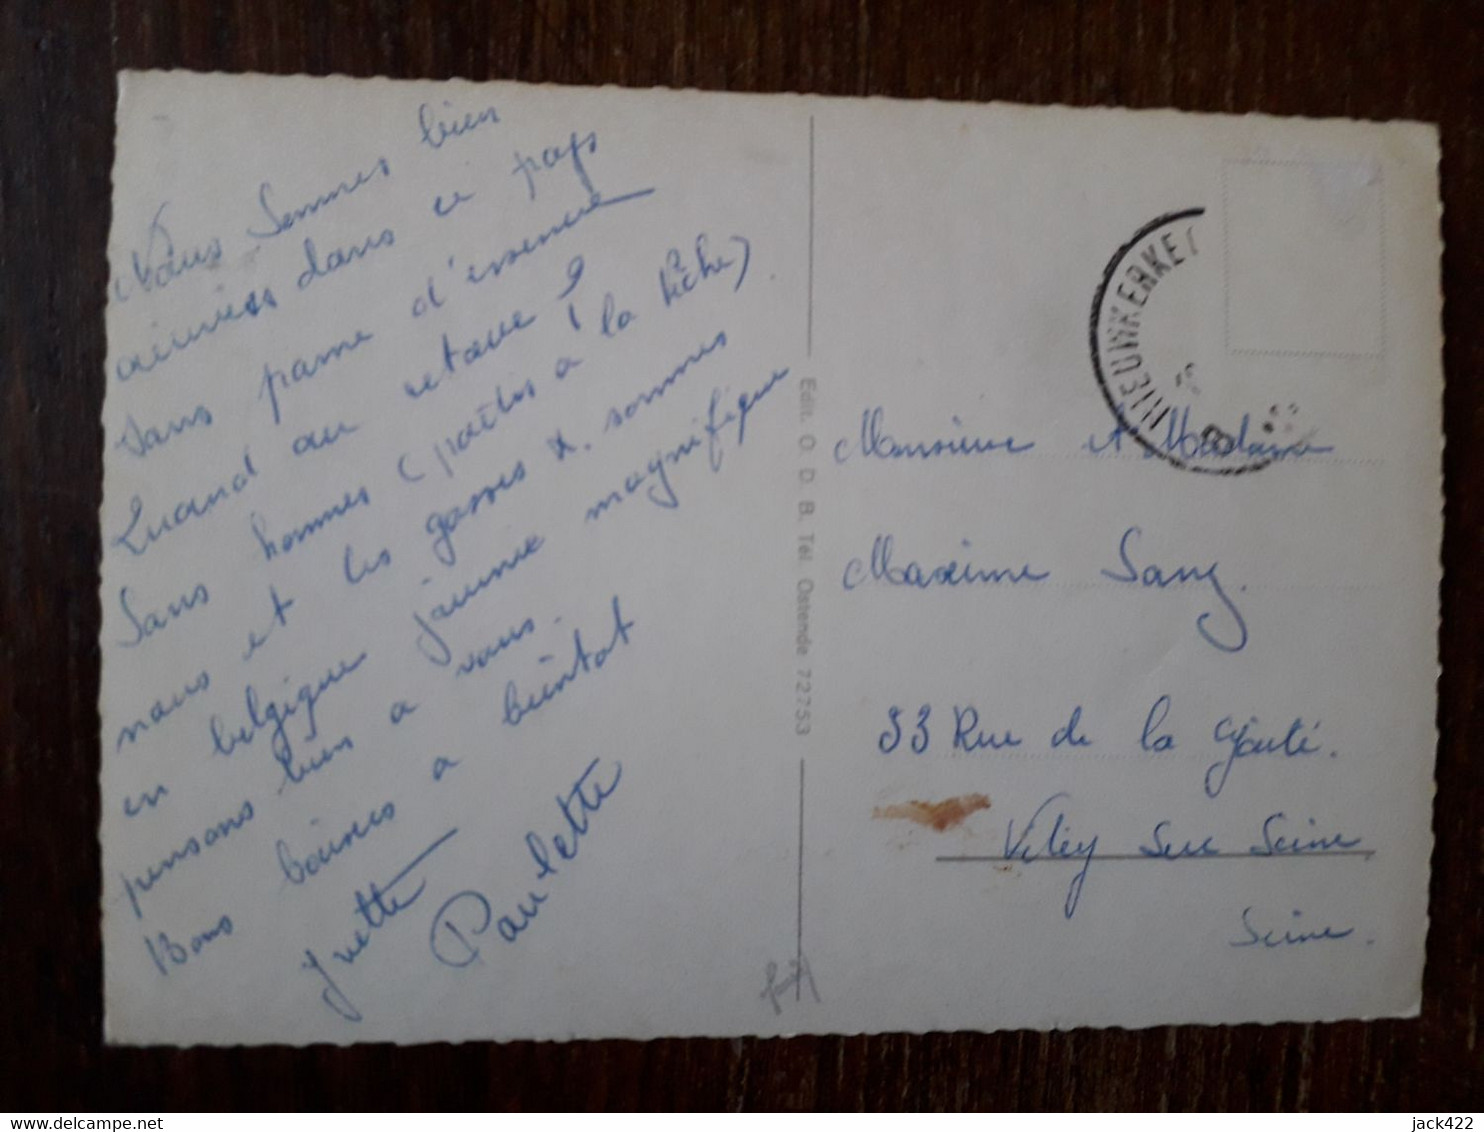 Nous sommes bien
arrivées dans ce pays
sans panne d'essence
Quand au retour ?
Sans hommes (partis à la pêche)
nous et les gosses sommes
en belgique journée magnifique
pensons bien a vous.
Bons baisers a bientot
Yvette
Paulette
Edit. O. D. B. Tél. Ostende 72753
NIEUWKERKE
B
Monsieur et Madame
Maxime Sany.
33 Rue de la Gaité.
Vitry sur Seine
Seine.
jack422